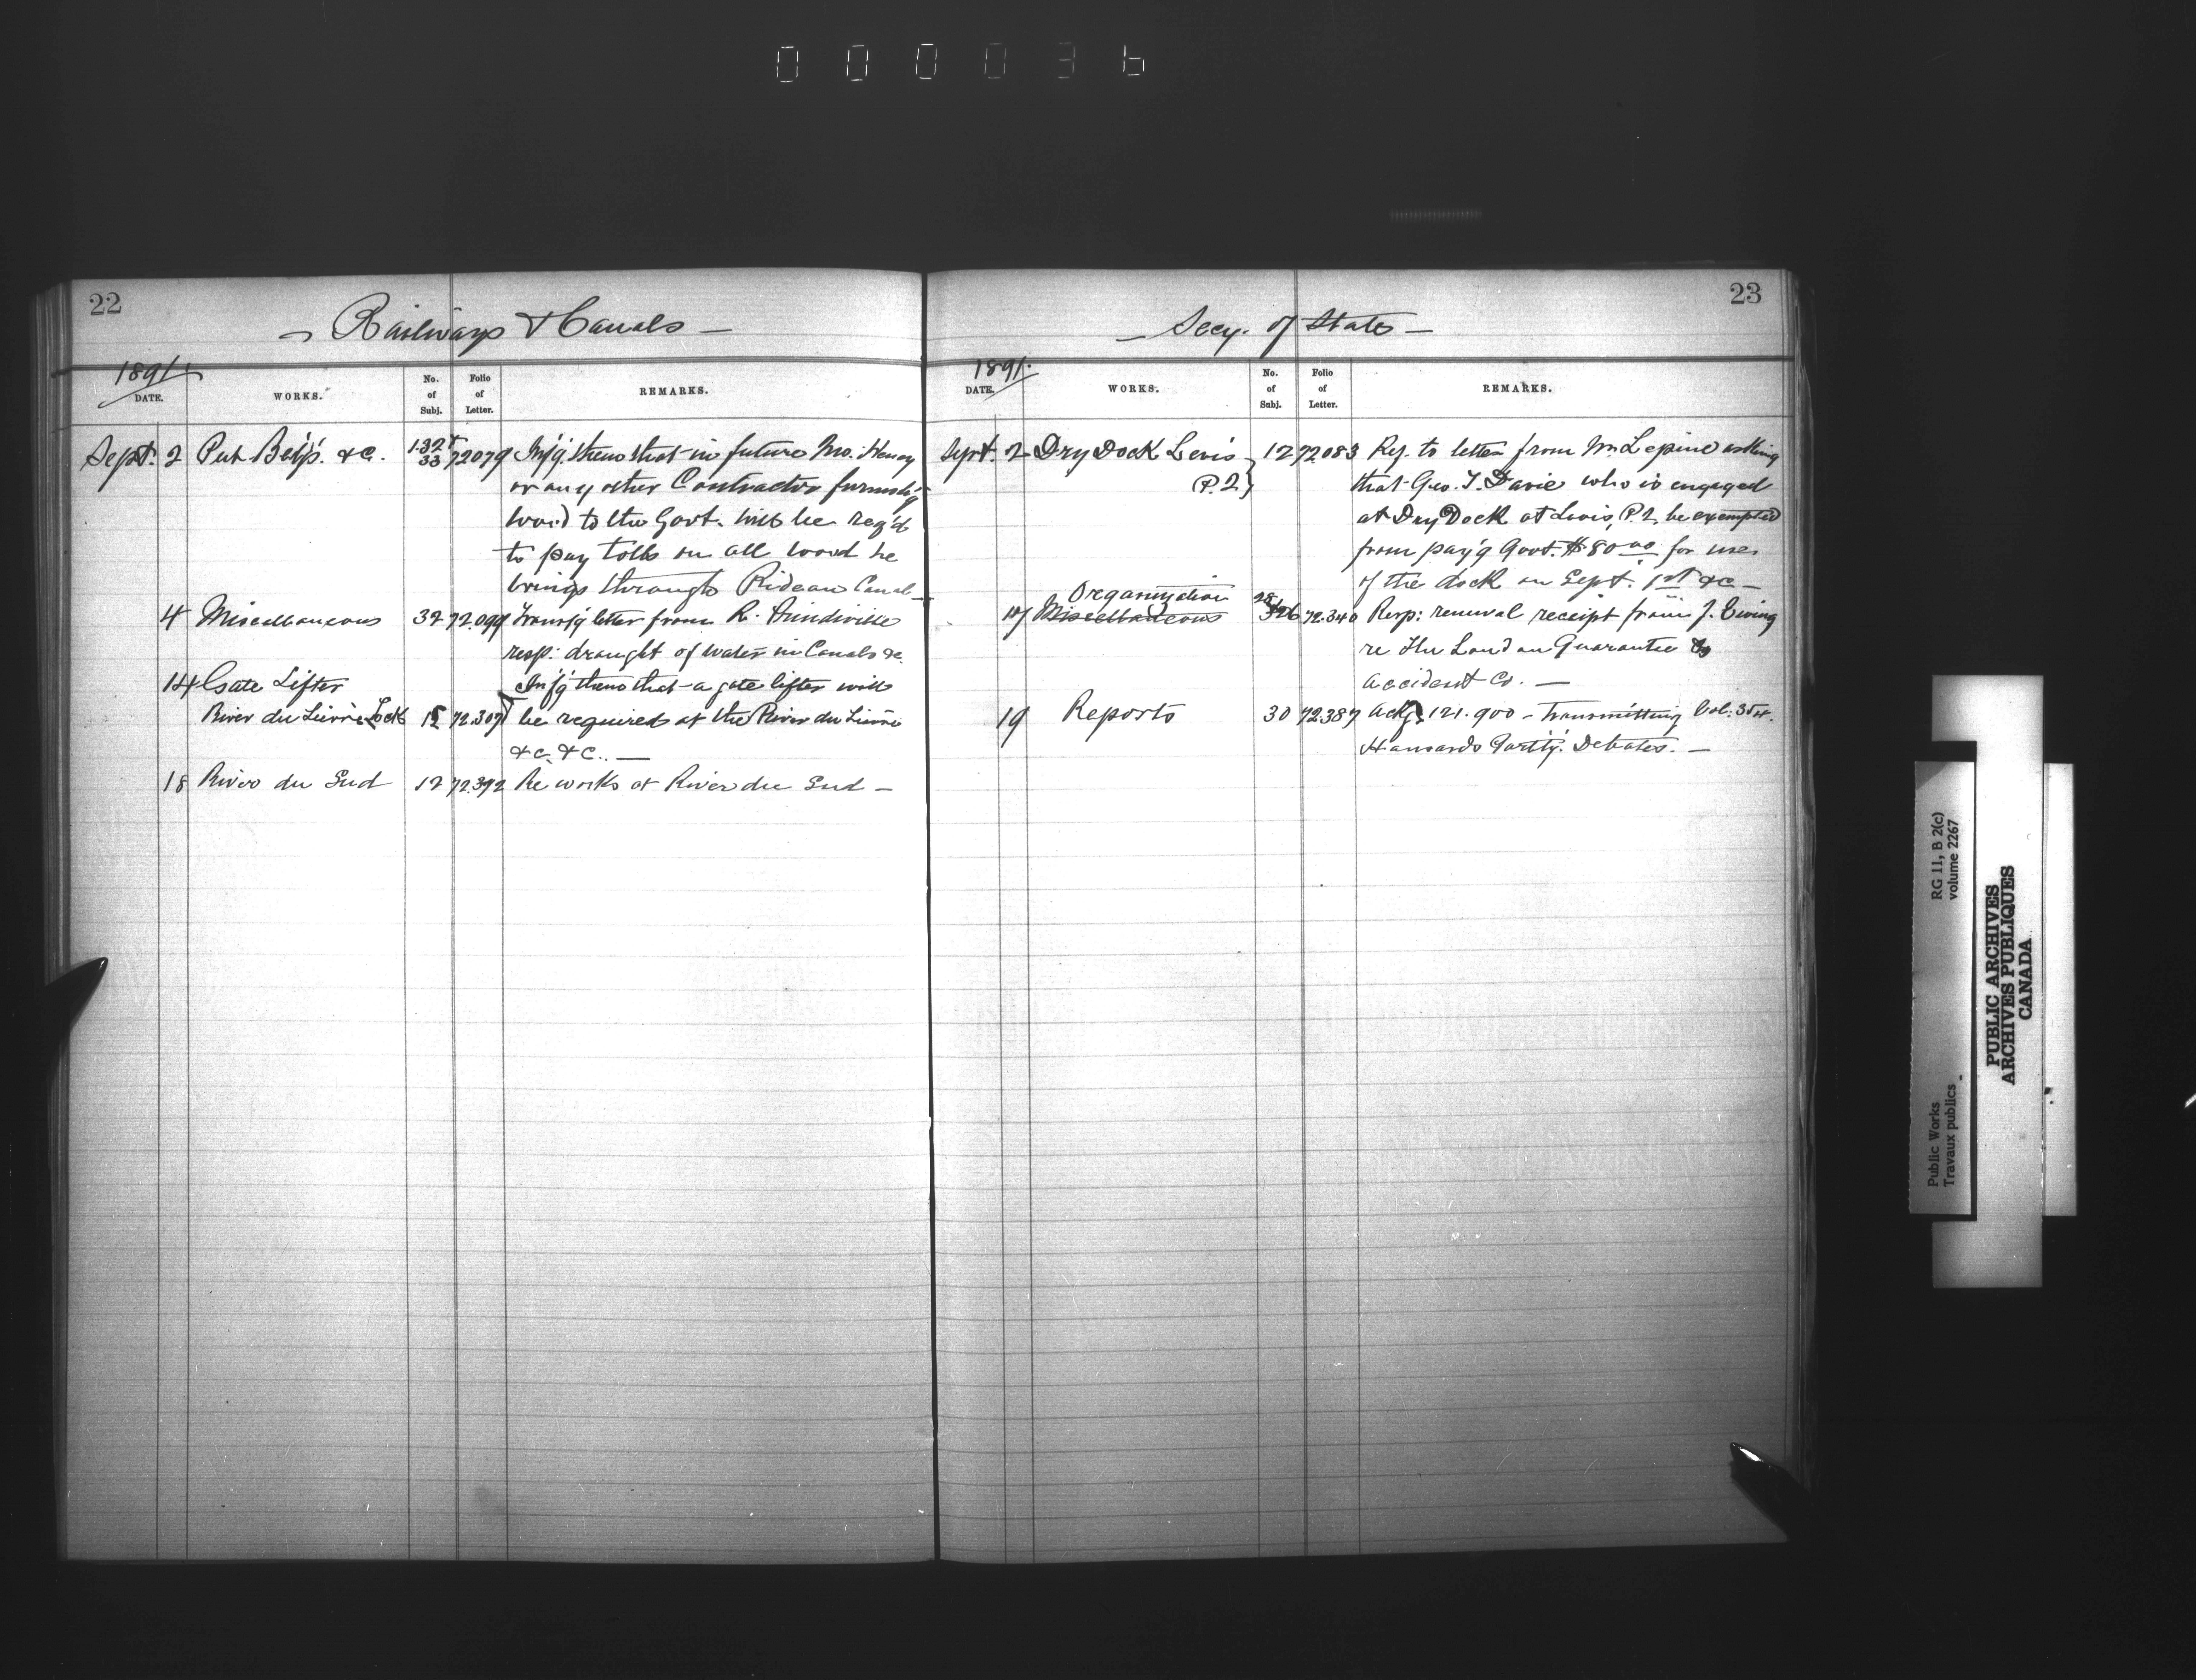 000036
22
Railways & Canals
1891.
DATE.
WORKS.
No. of Subj.
Folio of Letter.
REMARKS.
Sept. 2 Pub B'ld'gs. &c. 72079 Inf'g. them that in future Mr. Henry
or any other Contractor furnish'g
wood to the Govt. will be req'd
to pay tolls on all wood he
brings through Rideau Canal -
4 Miscellaneous 32 72.099 Trans'g letter from R.
resp: draught of water in Canals &c.
14 Gate Lifter Inf'g them that a gate lifter will
River du Lièvre Lock 15 72.307 be required at the River du Lièvre
&c. &c. —
18 River du Sud 12 72.392 Re works at River du Sud —
23
— Secy. of State —
1891.
DATE.
WORKS.
No. of Subj.
Folio of Letter.
REMARKS.
Sept. 2 Dry Dock Levis 12 72083 Rep. to letter from Mr. Lepine asking
P.Q. that Geo. T. Davie who is engaged
at Dry Dock at Levis, P.Q. be exempted
from pay'g Govt. $80 00 for use
of the dock on Sept. 1st &c —
Organization
17 Miscellaneous 72.340 Resp: renewal receipt from J. Ewing
re The London Guarantee &
Accident Co. —
19 Reports 30 72387 Ackg. 121.900 - Transmitting Vol: 3
Hansards Debates. —
Public Works
Travaux publics
RG 11, B 2(c)
volume 2267
PUBLIC ARCHIVES
ARCHIVES PUBLIQUES
CANADA